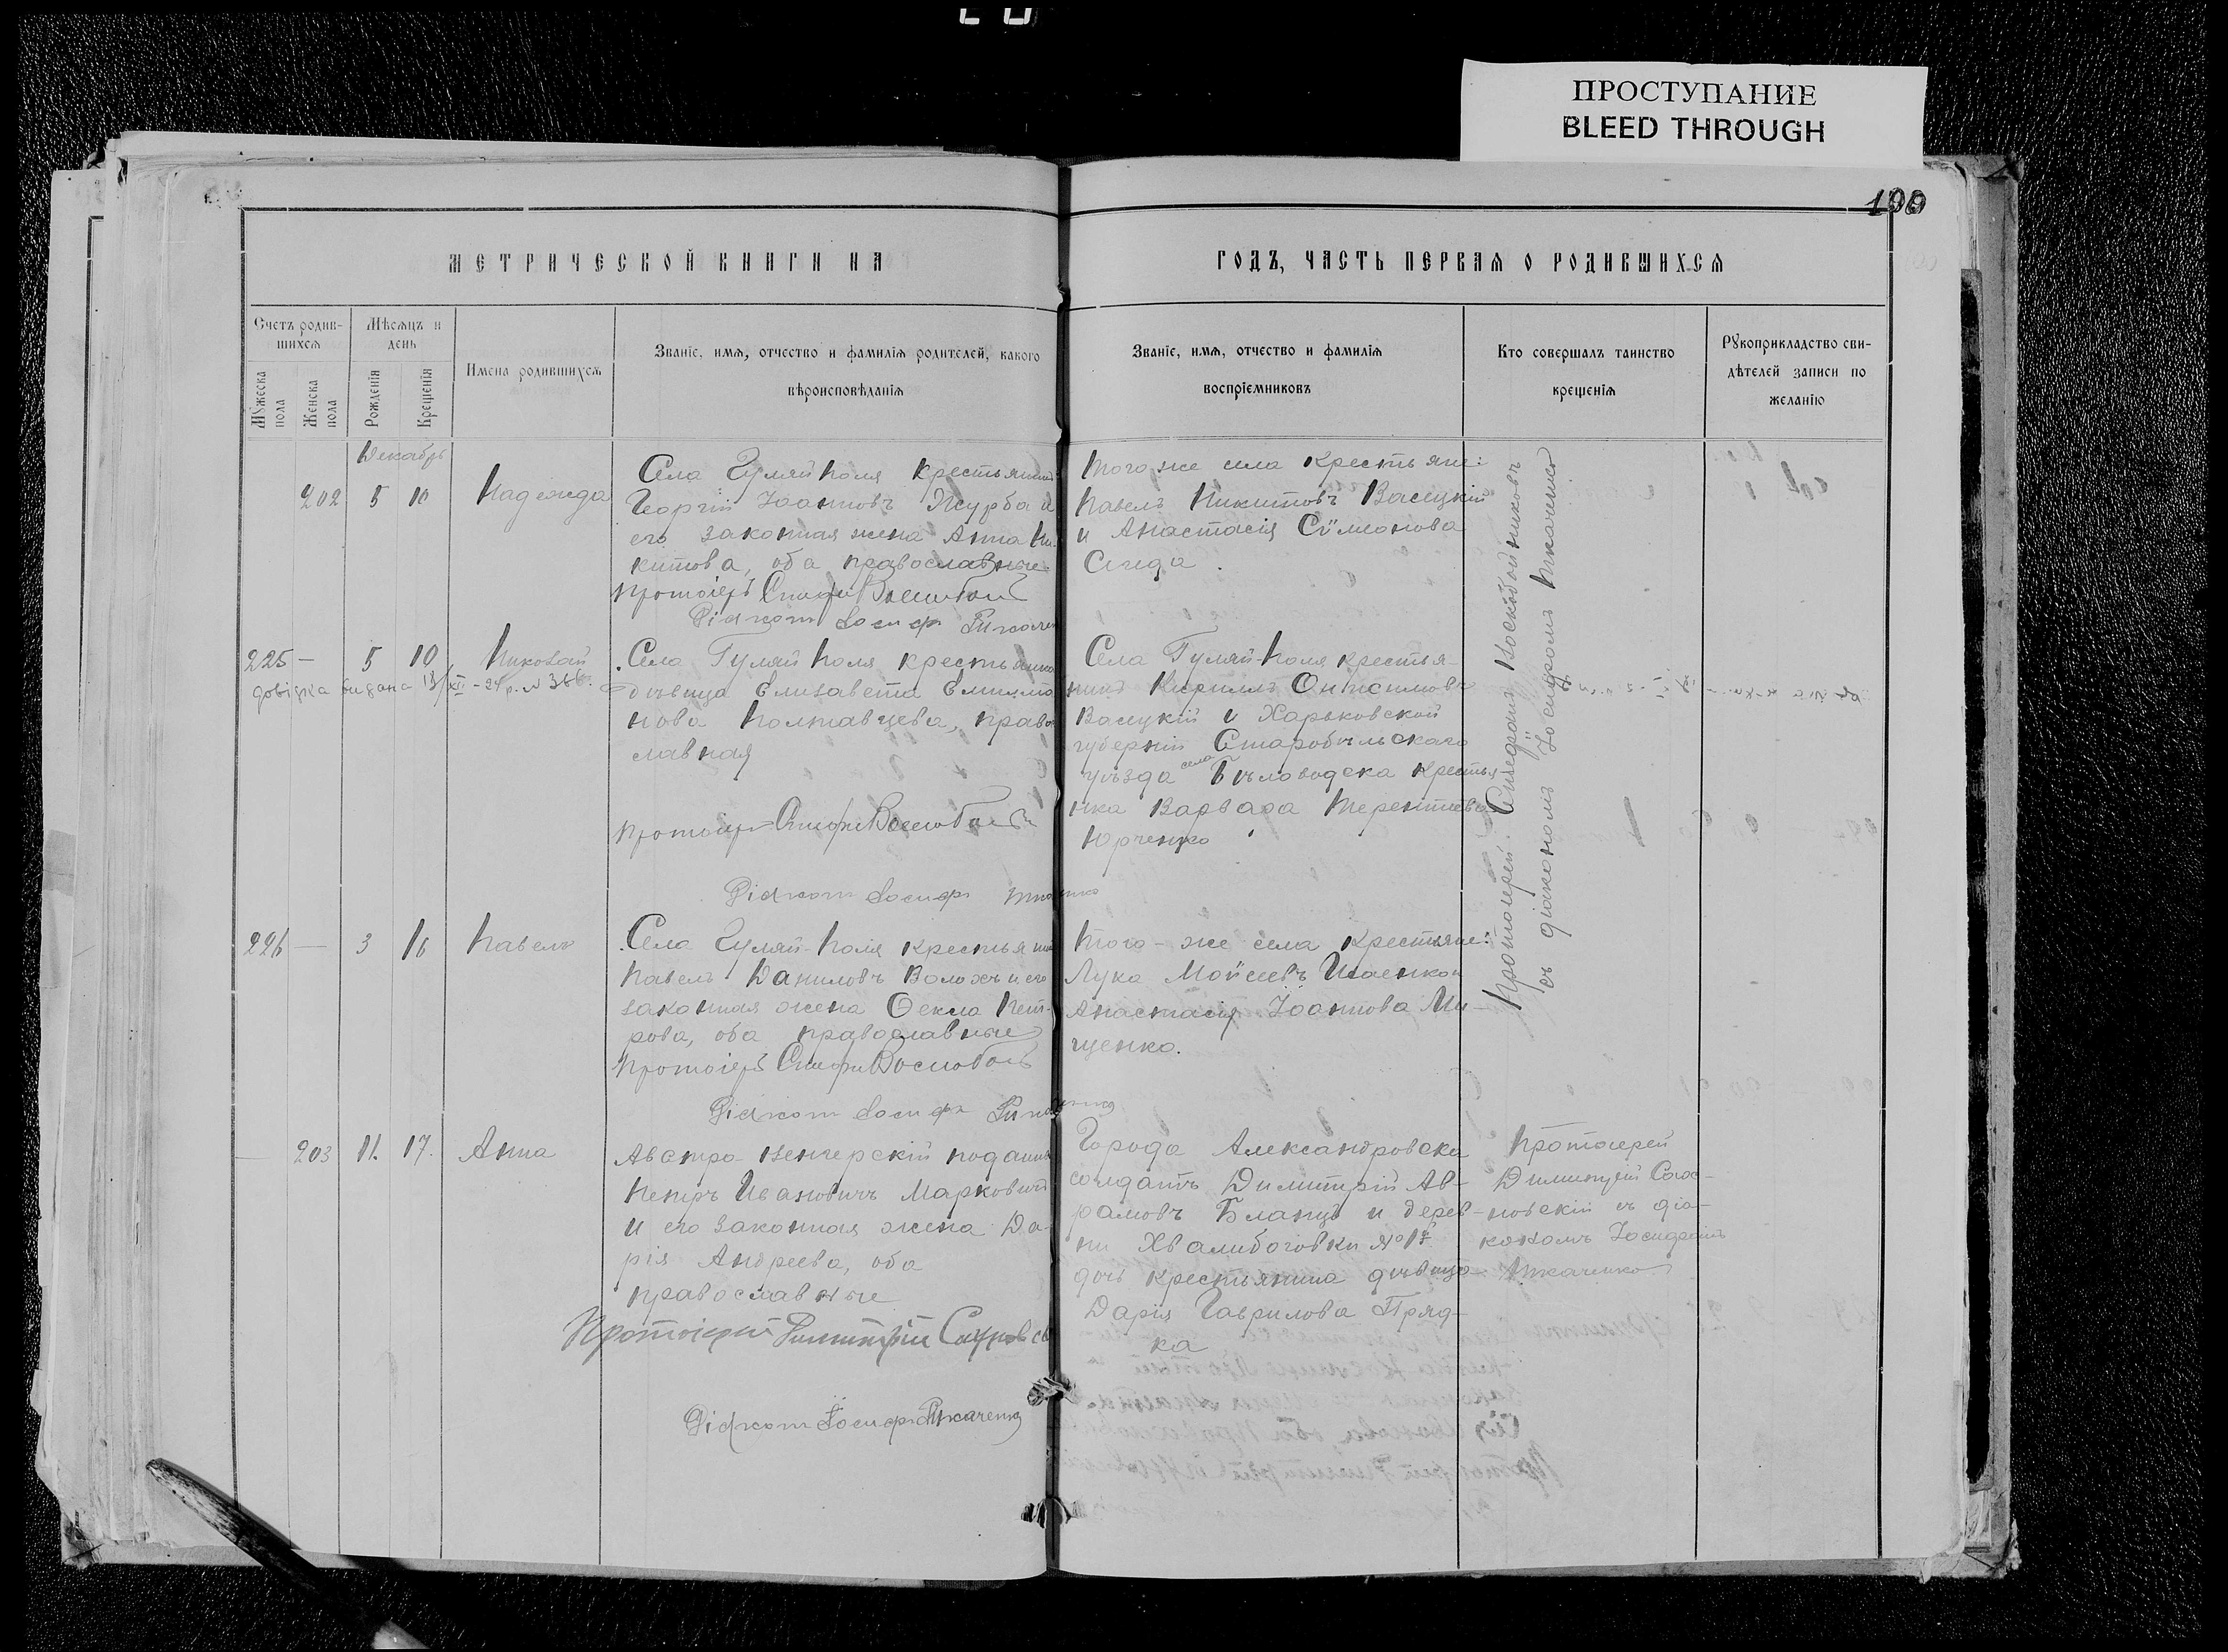 ПРОСТУПАНИЕ
BLEED THROUGH
МЕТРИЧЕСКОЙ КНИГИ НА
ГОДЪ, ЧАСТЬ ПЕРВАЯ О РОДИВШИХСЯ
Счетъ родив-
шихся
Мужеска
пола
Женска
пола
Мѣсяцъ и
день
Рожденія
Крещенія
Имена родившихся
Званіе, имя, отчество и фамилія родителей, какого
вѣроисповѣданія
Званіе, имя, отчество и фамилія
воспріемниковъ
Кто совершалъ таинство
крещенія
Рукоприкладство сви-
дѣтелей записи по
желанію
Декабрь
202 5 10 Надежда
Села Гуляй Поля крестьянинъ
Георгій Іоанновъ Журба и
его законная жена Анна Ни-
китова, оба православные
Протоіерей
Діаконъ Іосифъ Ткаченко
того же села крестьяне:
Павелъ Никитовъ Васецкій
и Анастасія Симеонова
Протоіерей Стефанъ Воскобойниковъ
съ діакономъ Іосифомъ Ткаченко
225 — 5 10 Николай
довідка видана 13/XII - 24 р. № 366.
Села Гуляй Поля крестьянка
дѣвица Елизавета
нова Полтавцева, право-
славная
Протоіерей
Діаконъ Іосифъ Ткаченко
Села Гуляй-Поля крестья-
нинъ Кириллъ Онисимовъ
Васецкій и Харьковской
губерніи Старобѣльскаго
уѣзда села Бѣловодска крестья-
нка Варвара Терентіева
Юрченко
226 — 3 16 Павелъ
Села Гуляй-Поля крестьянинъ
Павелъ Даниловъ Волохъ и его
законная жена Ѳекла Пет-
рова, оба православные
Протоіерей
Діаконъ Іосифъ Ткаченко
того-же села крестьяне:
Лука Моисеевъ
Анастасія Іоаннова Ми-
щенко.
— 203 11. 17. Анна
Австро-Венгерскій подданный
Петръ Ивановичъ Марковичъ
и его законная жена Да-
рія Андреева, оба
православные
Протоіерей Димитрій
Діаконъ Іосифъ Ткаченко
Города Александровска
солдатъ Димитрій Ав-
рамовъ Бланцъ и дерев-
ни Хвалибоговки № 17
дочь крестьянина дѣвица
Дарія Гаврилова Пряд-
ка
Протоіерей
Димитрій
новскій съ діа-
кономъ Іосифомъ
Ткаченко